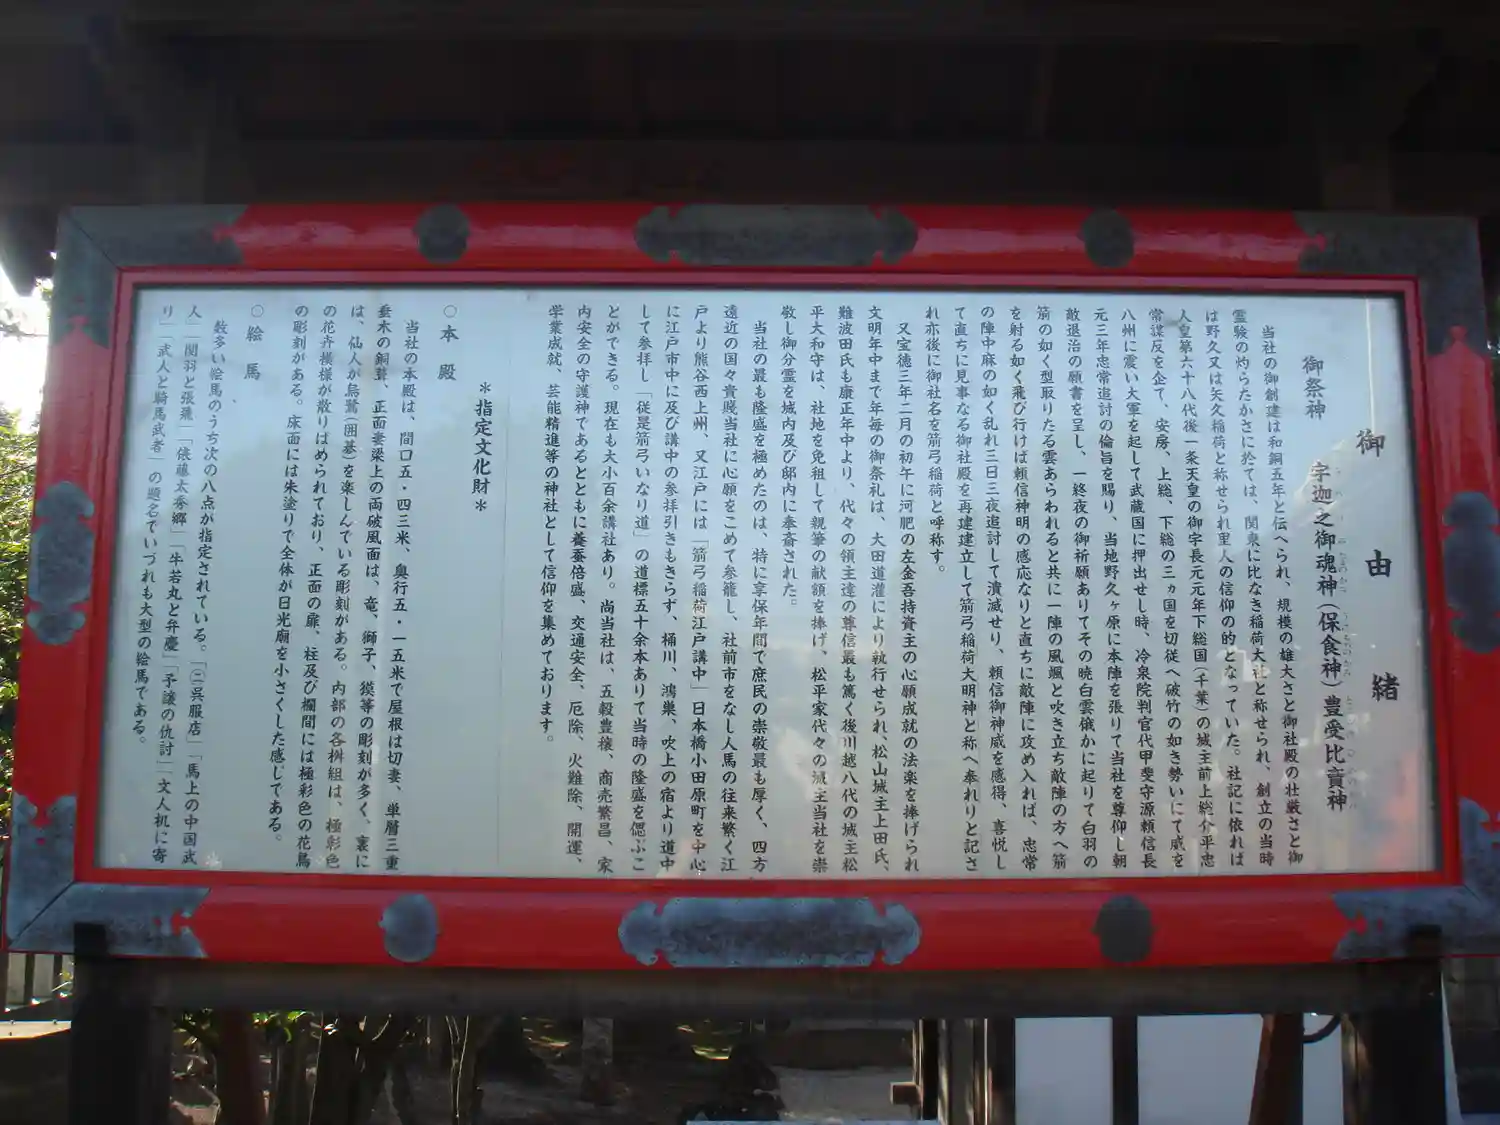 御由緒
御祭神
宇迦之御魂神(保食神)豊受比賣神
当社の御創建は和銅五年と伝へられ、規模の雄大さと御社殿の壮厳さと御
霊験の灼らたかさに於ては、関東に比なき稲荷大社と称せられ、創立の当時
は野久又は矢久稲荷と称せられ里人の信仰の的となっていた。社記に依れば
人皇第六十八代後一条天皇の御宇長元元年下総国(千葉)の城主前上総介平忠
常謀反を企て、安房、上総、下総の三ヵ国を切従へ破竹の如き勢いにて威を
八州に震い大軍を起して武蔵国に押出せし時、冷泉院判官代甲斐守源頼信長
元三年忠常追討の倫旨を賜り、当地野久ヶ原に本陣を張りて当社を尊仰し朝
敵退治の願書を呈し、一終夜の御祈願ありてその暁白雲俄かに起りて白羽の
箭の如く型取りたる雲あらわれると共に一陣の風颯と吹き立ち敵陣の方へ箭
を射る如く飛び行けば頼信神明の感応なりと直ちに敵陣に攻め入れば、忠常
の陣中麻の如く乱れ三日三夜追討して潰滅せり、頼信御神威を感得、喜悦し
て直ちに見事なる御社殿を再建建立して箭弓稲荷大明神と称へ奉れりと記さ
れ亦後に御社名を箭弓稲荷と呼称す。
又宝徳三年二月の初午に河肥の左金吾持資主の心願成就の法楽を捧げられ
文明年中まで年毎の御祭礼は、大田道灌により執行せられ、松山城主上田氏、
難波田氏も康正年中より、代々の領主達の尊信最も篤く後川越八代の城主松
平大和守は、社地を免租して親筆の献額を捧げ、松平家代々の城主当社を崇
敬し御分霊を城内及び邸内に奉斎された。
当社の最も隆盛を極めたのは、特に享保年間で庶民の崇敬最も厚く、四方
遠近の国々貴賤当社に心願をこめて参籠し、社前市をなし人馬の往来繁く江
戸より熊谷西上州、又江戸には「箭弓稲荷江戸講中」日本橋小田原町を中心
に江戸市中に及び講中の参拝引きもきらず、桶川、鴻巣、吹上の宿より道中
して参拝し「従是箭弓いなり道」の道標五十余本ありて当時の隆盛を偲ぶこ
とができる。現在も大小百余講社あり。尚当社は、五穀豊穣、商売繁昌、家
内安全の守護神であるとともに養蚕倍盛、交通安全、厄除、火難除、開運、
学業成就、芸能精進等の神社として信仰を集めております。
*指定文化財*
○本殿
当社の本殿は、間口五・四三米、奥行五・一五米で屋根は切妻、単層三重
垂木の銅葺、正面妻梁上の両破風面は、竜、獅子、獏等の彫刻が多く、裏に
は、仙人が烏鷺(囲碁)を楽しんでいる彫刻がある。内部の各桝組は、極彩色
の花卉模様が散りばめられており、正面の扉、柱及び欄間には極彩色の花鳥
の彫刻がある。床面には朱塗りで全体が日光廟を小さくした感じである。
○絵馬
数多い絵馬のうち次の八点が指定されている。「㊂呉服店」「馬上の中国武
人」「関羽と張飛」「俵藤太秀郷」「牛若丸と弁慶」「予譲の仇討」「文人机に寄
り」「武人と騎馬武者」の題名でいづれも大型の絵馬である。